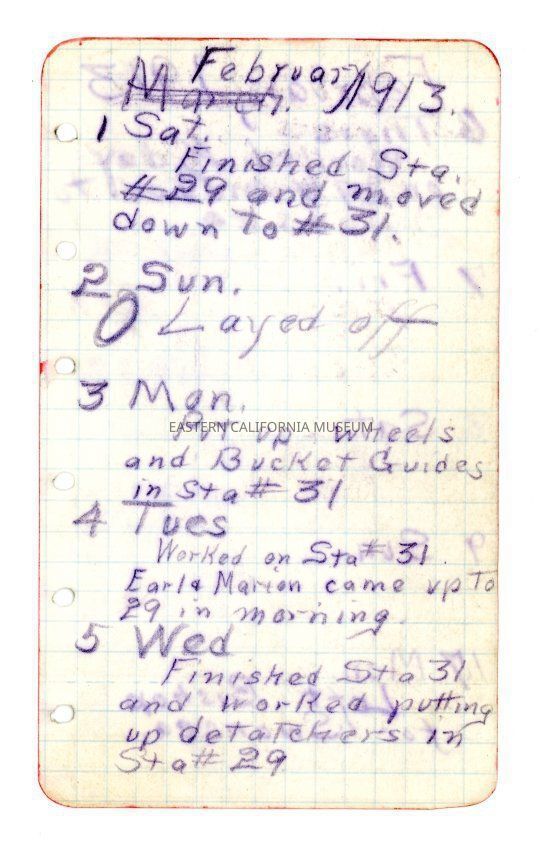 February
March. 1913.
1 Sat.
Finished Sta.
#29 and moved
down To #31.
2 Sun.
0 Layed off
3 Mon.
EASTERN CALIFORNIA MUSEUM
Put up wheels
and Bucket Guides
in Sta# 31
4 Tues
Worked on Sta# 31.
Earl & Marion came up To
29 in morning.
5 Wed
Finished Sta 31
and worked putting
up detatchers in
Sta# 29